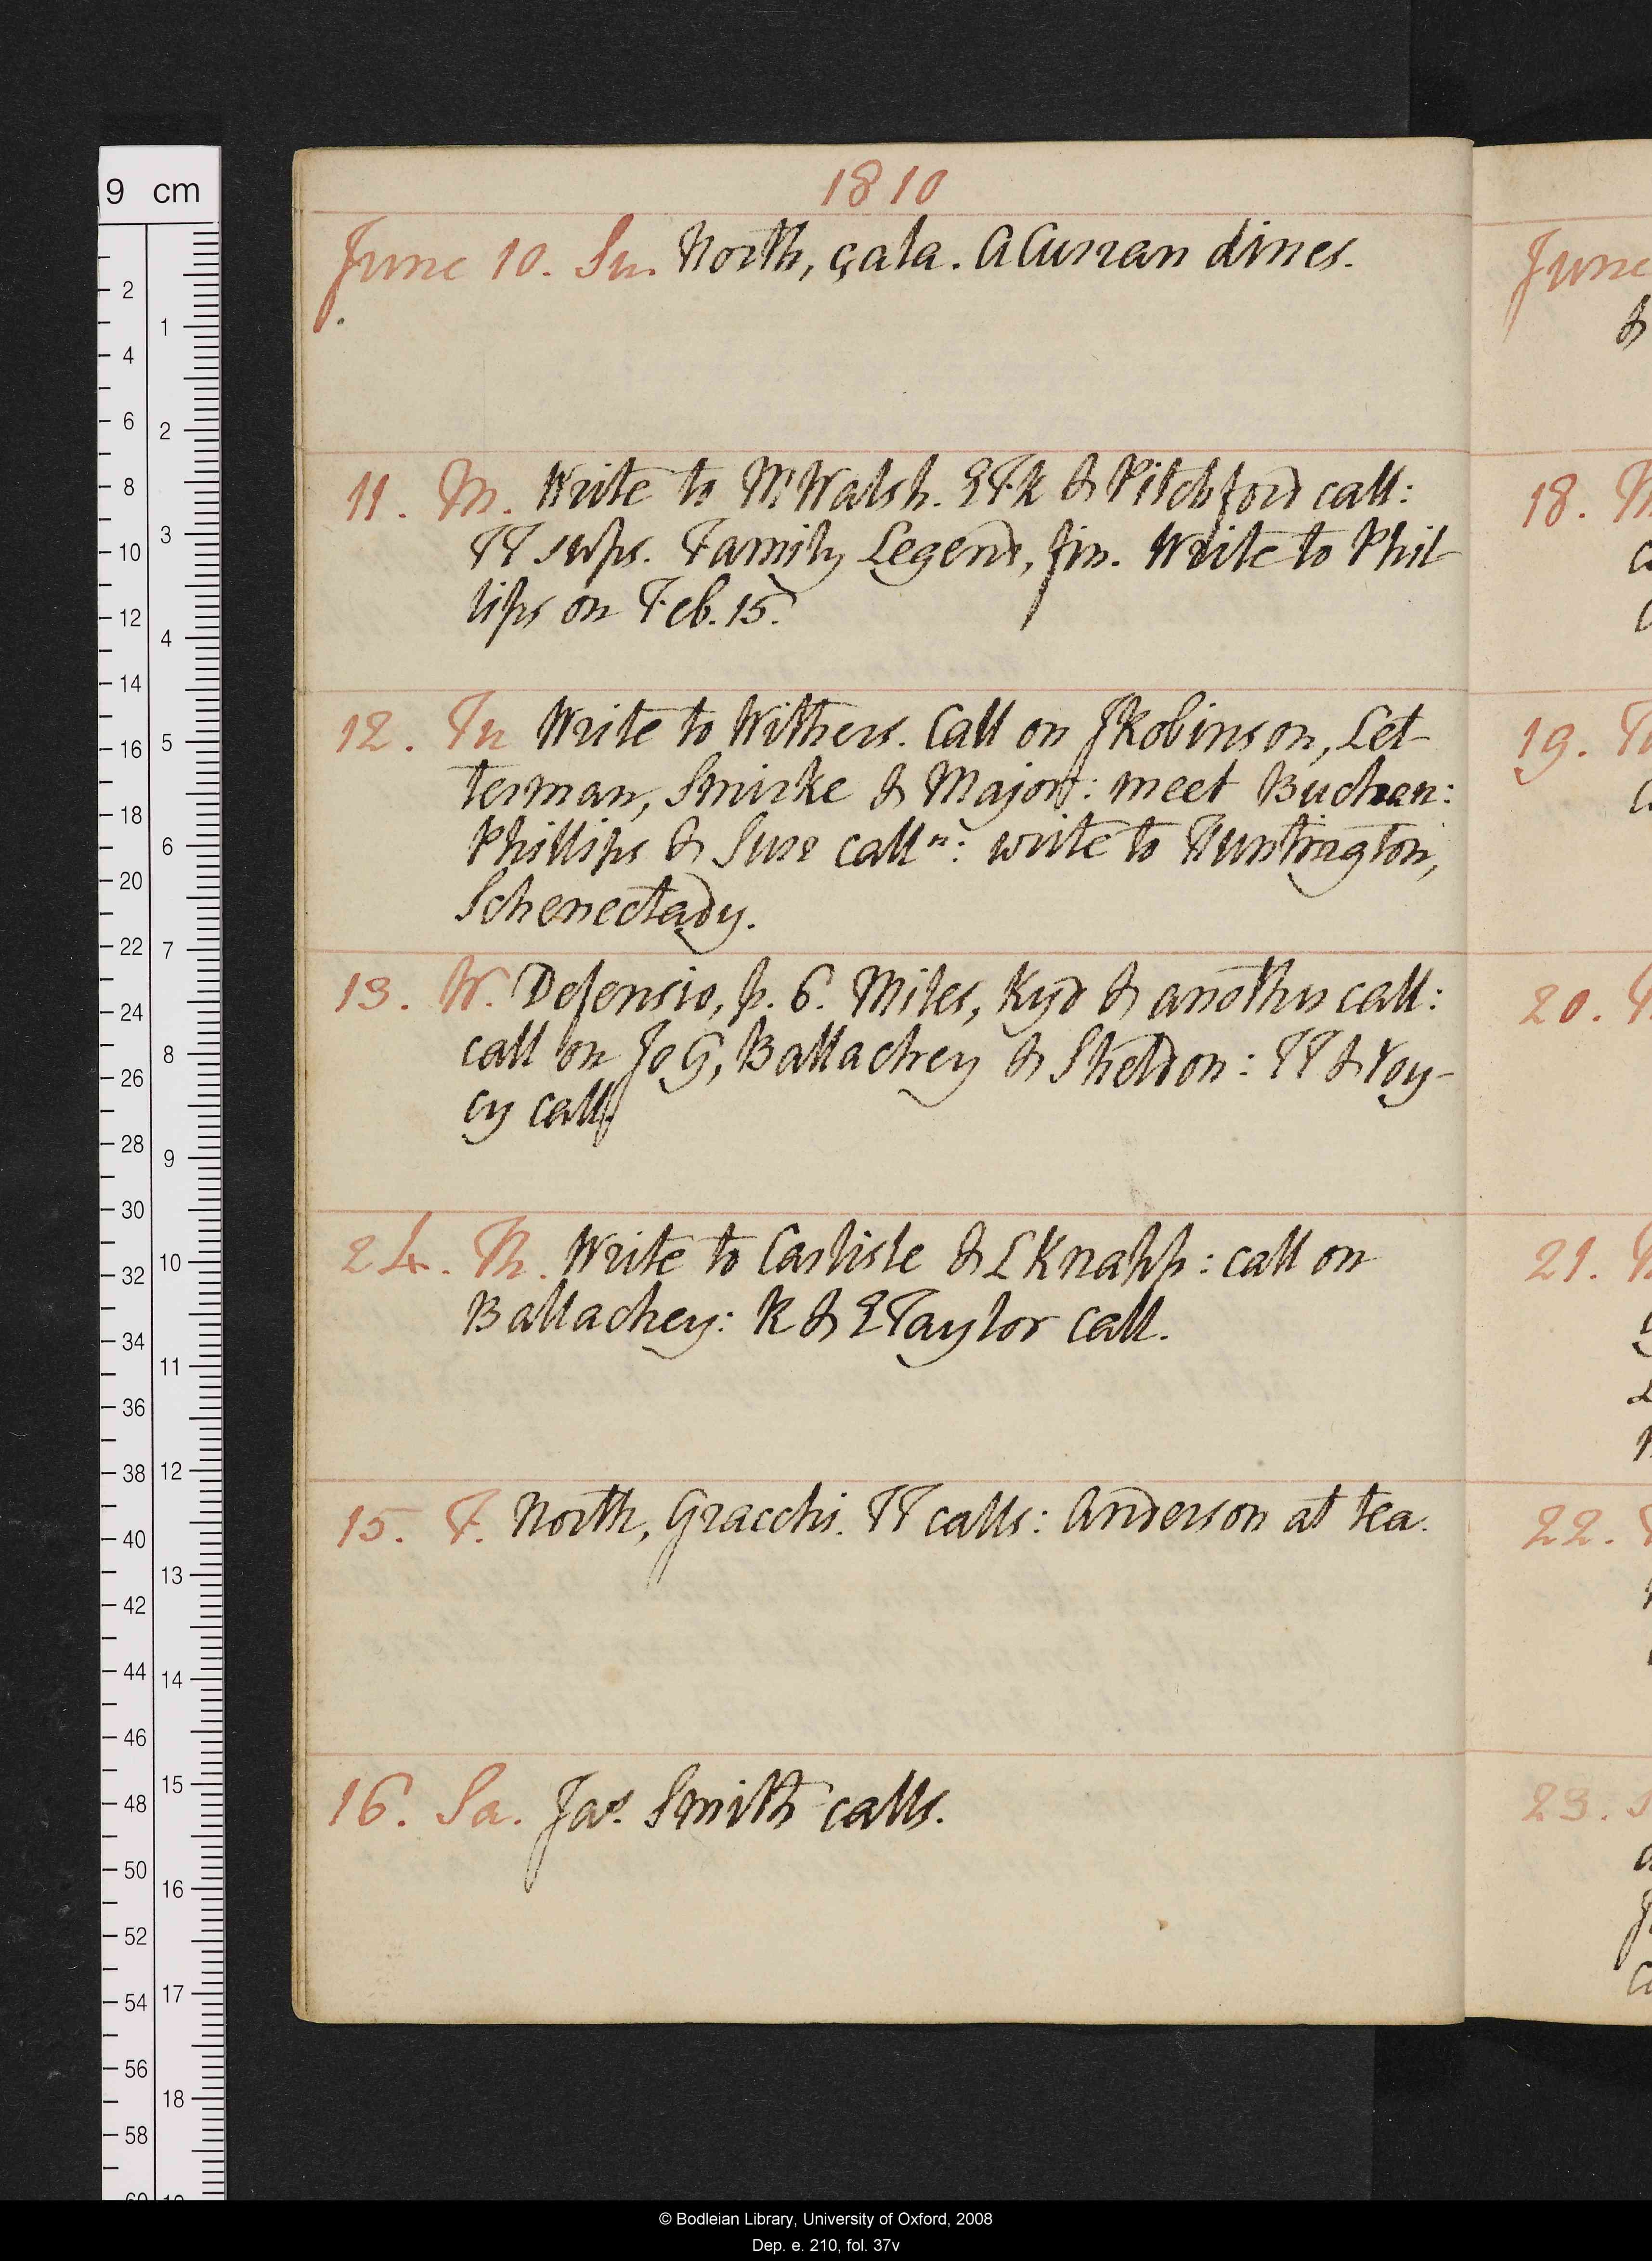 1810
June 10. Su. North, çala. A Curran dines.
11. M. Write to Mr Walsh. E T. R & Pitchford call:
TT sups. Family Legend, fin. Write to Phil-
lips on Feb. 15.
12. Tu Write to Withers. Call on J Robinson, Let-
terman, Smirke & Major: meet Buchan:
Phillips & Surr calln: write to Huntington,
Schenectady.
13. W. Defensio, p. 6. Miles, Kyd & another call:
call on Jo G, Ballachey & Sheldon: TT & Voy-
cy call.
24. Th. Write to Carlisle & L Knapp: call on
Ballachey: R & E Taylor call.
15. F. North, Gracchi. TT calls: Anderson at tea.
16. Sa. Jas. Smith calls.
June
&
18.
19.
20.
21.
22.
23.
9 cm
2
4
6
8
10
12
14
16
18
20
22
24
26
28
30
32
34
36
38
40
42
44
46
48
50
52
54
56
58
1
2
3
4
5
6
7
8
9
10
11
12
13
14
15
16
17
18
© Bodleian Library, University of Oxford, 2008
Dep. e. 210, fol. 37v